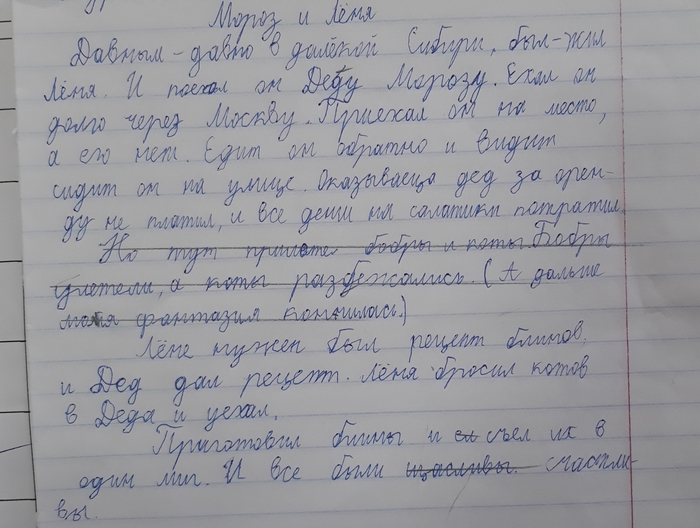 Мороз и Лёня
Давным-давно в далёкой Сибири, был-жил
Лёня. И поехал он Деду Морозу. Ехал он
долго через Москву. Приехал он на место,
а его нет. Едит он обратно и видит
сидит он на улице. Оказываеца дед за арен-
ду не платил, и все деньи на салатики потратил.
Но тут прилете бобры и коты. Бобры
улетели, а коты разбежались. (А дальше
моя фантазия кончилась.)
Лёне нужен был рецепт блинов,
и Дед дал рецепт. Лёня бросил котов
в Деда и уехал.
Приготовил блины и сл съел их в
один миг. И все были щасливы. счастли-
вы.